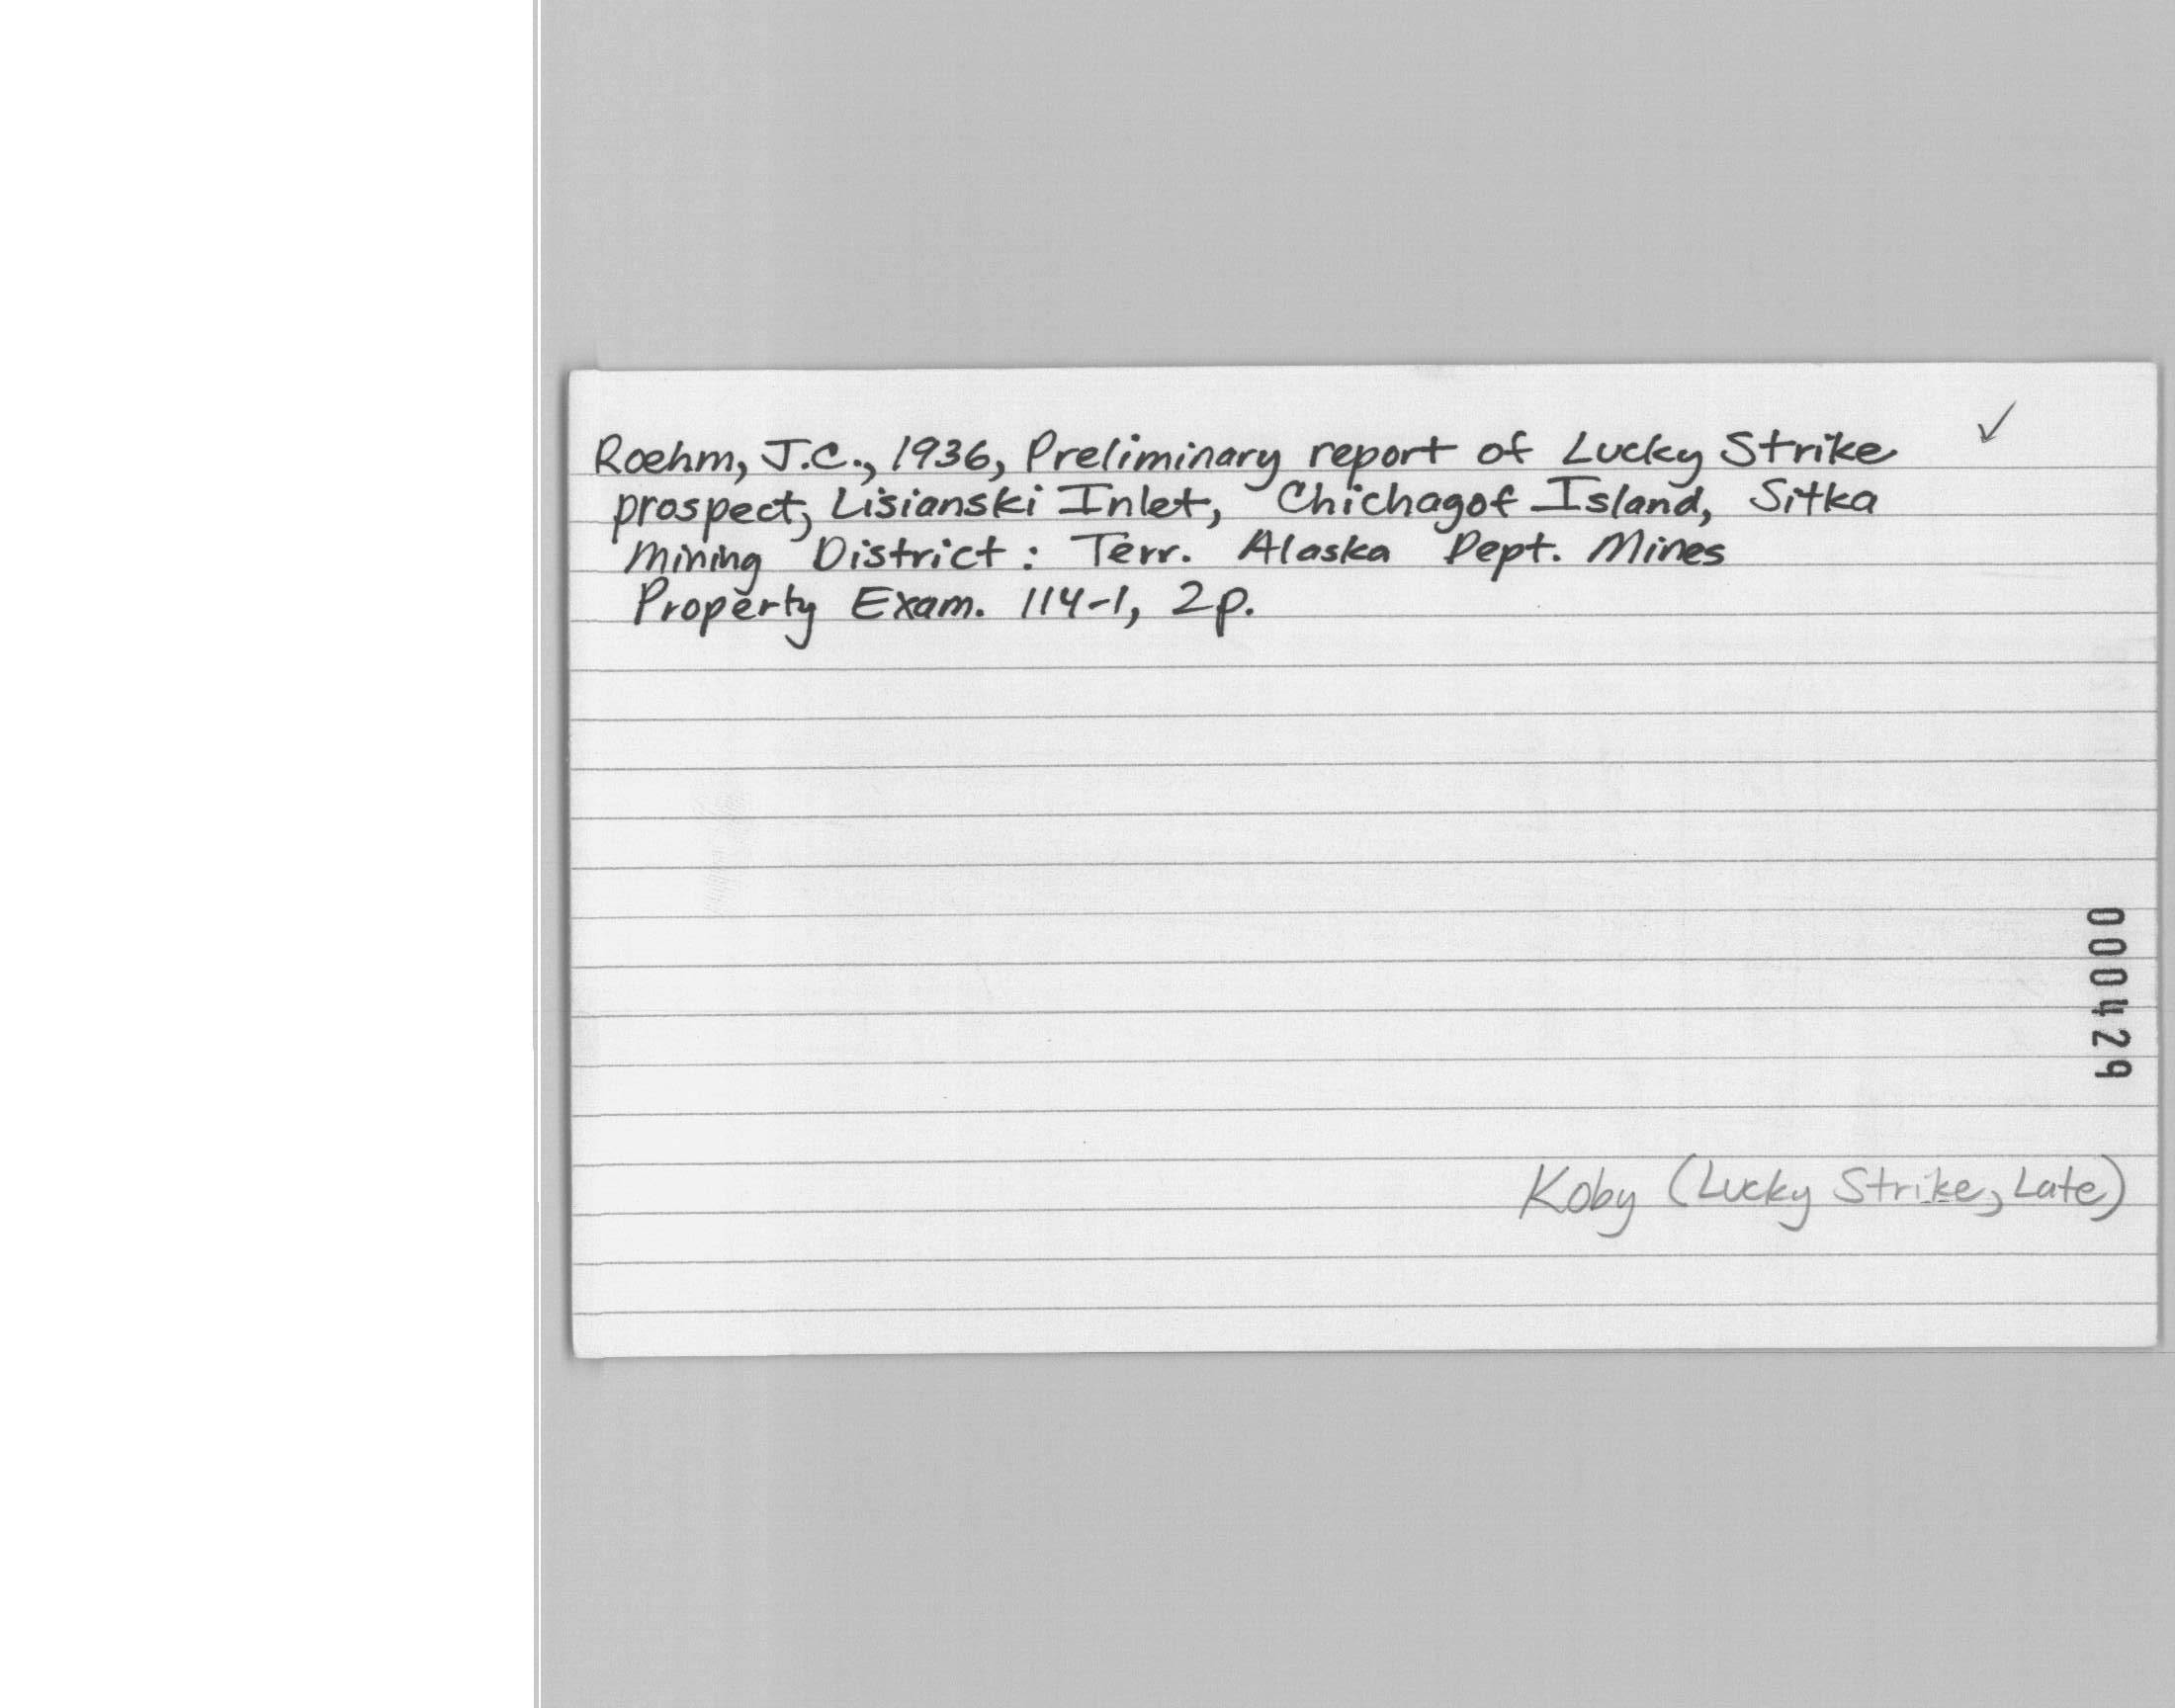 Roehm, J.C., 1936, Preliminary report of Lucky Strike ✓
prospect, Lisianski Inlet, Chichagof Island, Sitka
Mining District: Terr. Alaska Dept. Mines
Property Exam. 114-1, 2p.
000429
Koby (Lucky Strike, Late)